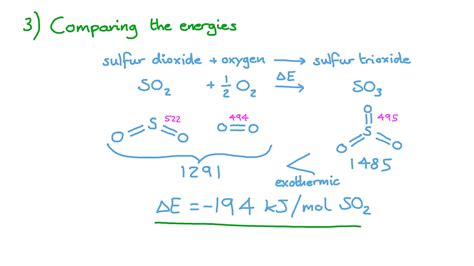 3) Comparing the energies
sulfur dioxide + oxygen → sulfur trioxide
SO₂ + ½ O₂ ΔE → SO₃
522 494 495
O=S=O O=O O=S(=O)=O
1291 < 1485
exothermic
ΔE = -194 kJ/mol SO₂